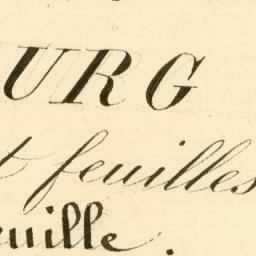 URG
t feuilles
euille.